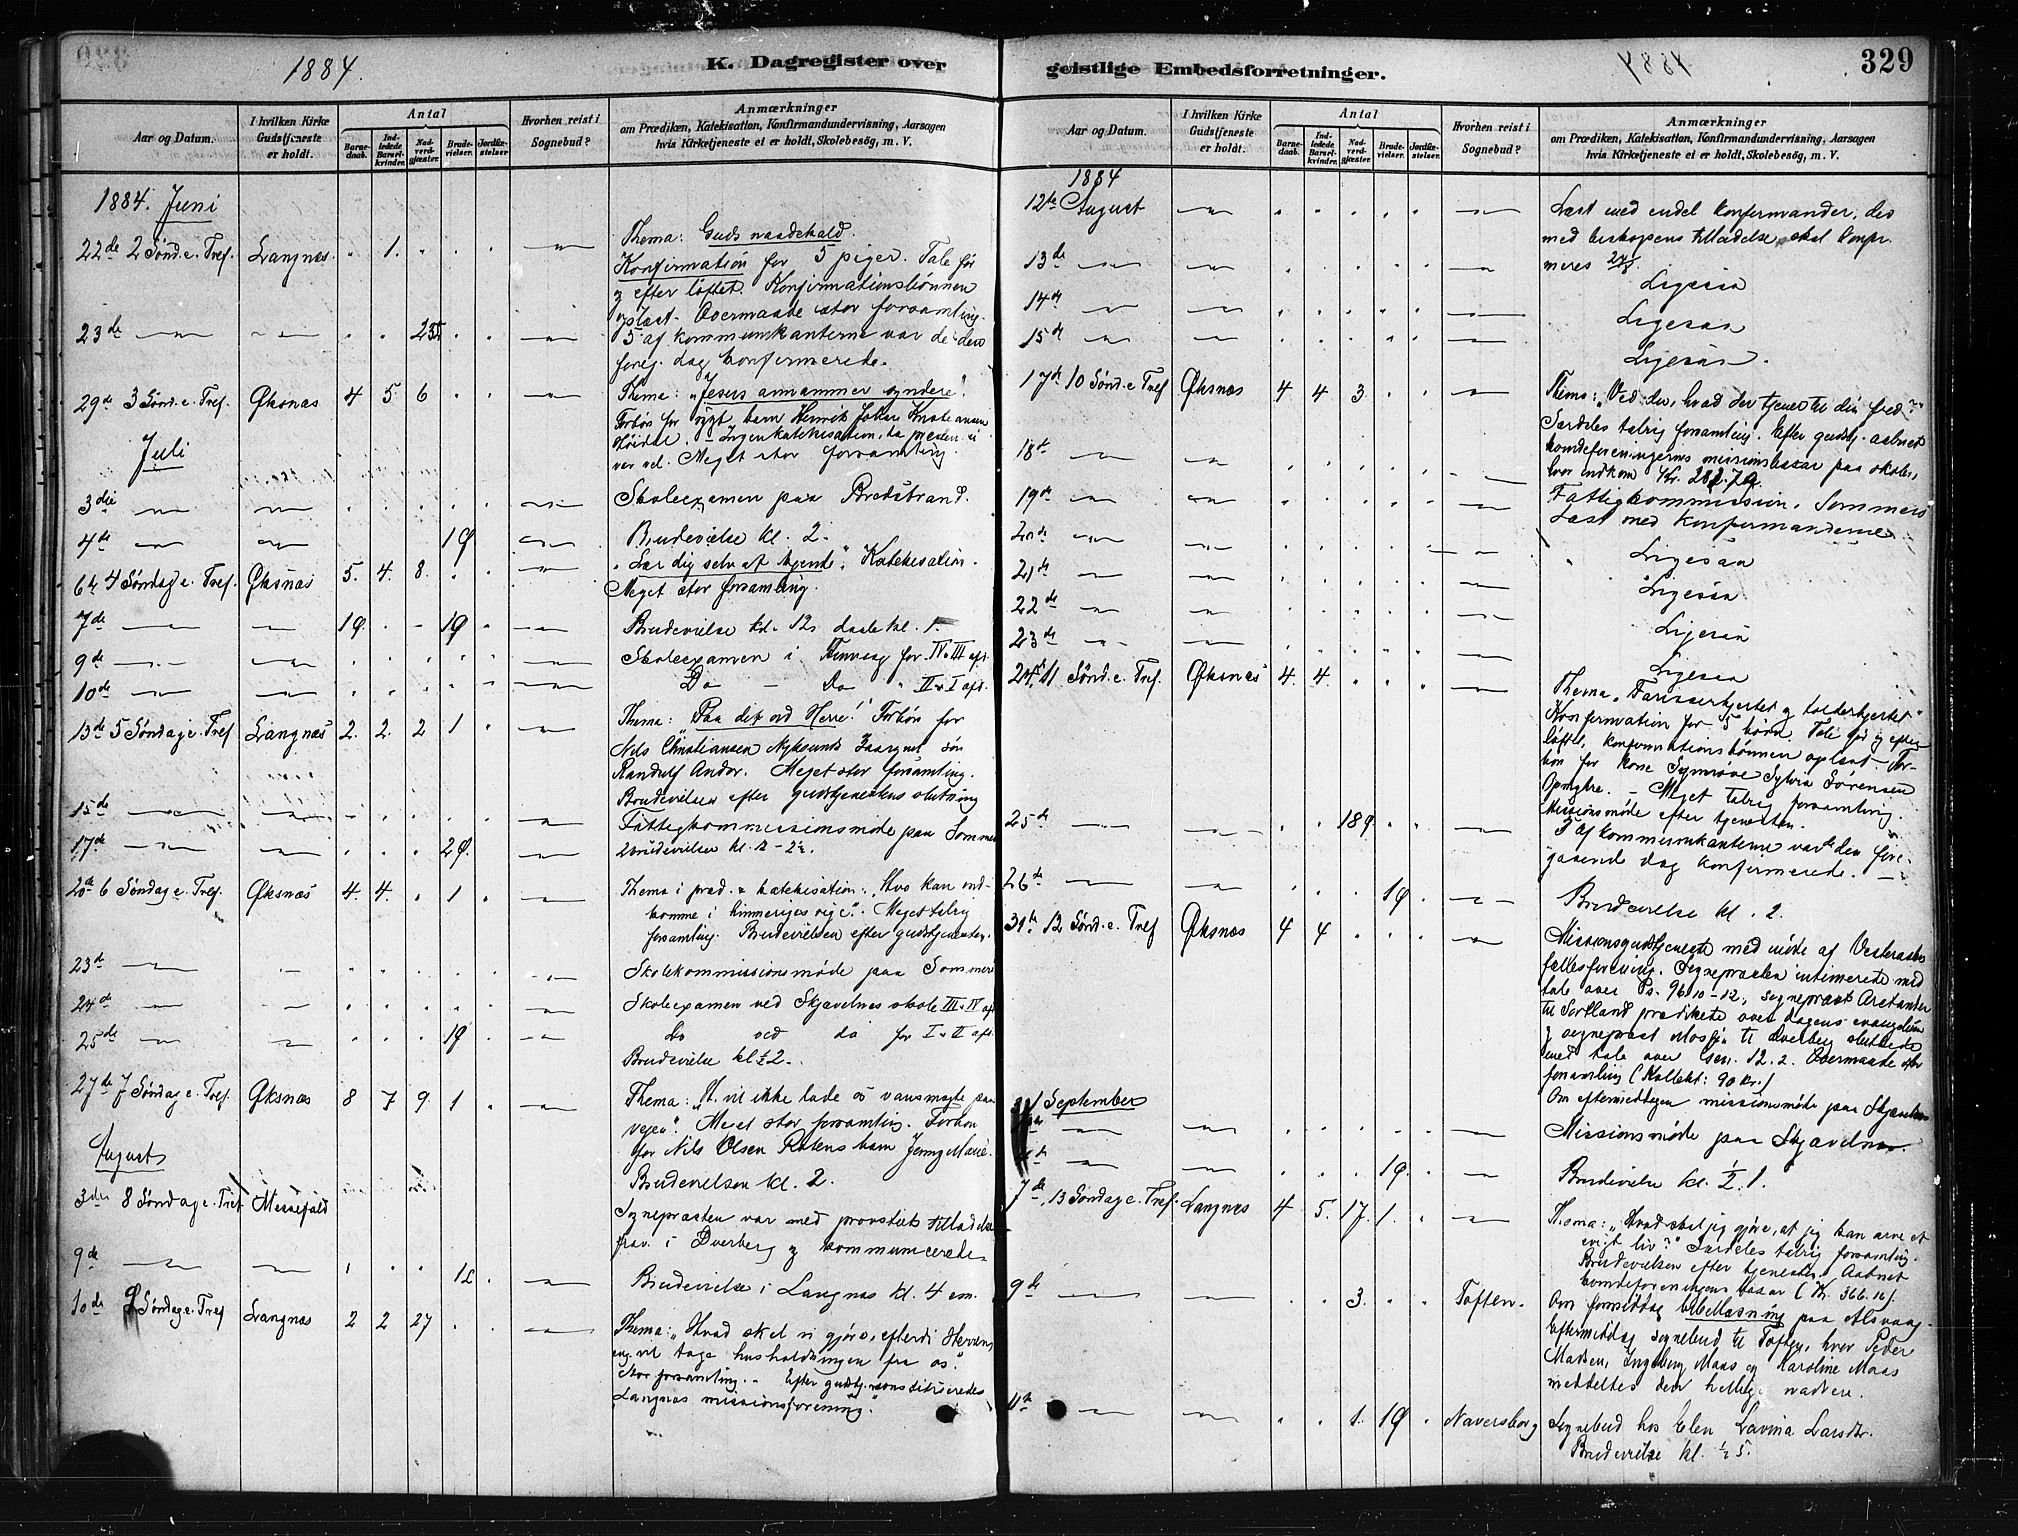 1884.
K. Dagregister over
Aar og Datum.
I hvilken Kirke
Gudstjeneste
er holdt.
Antal
Barne-
daab.
Ind-
ledede
Barsel-
kvinder.
Nad-
verd-
gjæster.
Brude-
vielser.
Jordfæ-
stelser.
Hvorhen reist i
Sognebud?
Anmærkninger
om Prædiken, Katekisation, Konfirmandundervisning, Aarsagen
hvis Kirketjeneste ei er holdt, Skolebesög, m. V.
1884. Juni
22de 2 Sønd. e. Tref. Langnæs. 1.
Thema: Guds naadekald.
Konfirmation for 5 piger. Tale før
og efter løftet. Konfirmationsbønnen
oplæst. Overmaade stor forsamling.
23de
5 af kommunikanterne var de den
foreg. dag konfirmerede.
29de 3 Sønd. e. Tref. Øksnæs 4 5 6
Thema: "Jesus annammer syndere".
Meget stor forsamling.
Juli
3die
Skoleexamen paa Bredstrand.
4de 1
Brudevielse kl. 2.
6te 4 Søndag e. Tref. Øksnæs 5. 4. 8.
"Lær dig selv at kjende". Katekisation.
Meget stor forsamling.
7de 1 1
Brudevielse kl. 12, daab kl. 1.
9de
Skoleexamen i for IV. III afd.
10de
Do — Do " II. I afd.
13de 5 Søndag e. Tref Langnæs 2. 2. 2 1
Thema: Paa det ord Herre! Forbøn for
Nils Christiansen Nyksund søn
Randulf Andor. Meget stor forsamling.
Brudevielsen efter gudstjenestens slutning
15de
Fattigkommissionsmøde paa Sommerø
17de 2
2 brudevielser kl. 12 - 2½.
20de 6 Søndag e. Tref. Øksnæs 4. 4. 1
Thema i præd. & katekisation: "Hvo kan ind-
komme i himmeriges rige". Meget talrig
forsamling. Brudevielsen efter gudstjenesten.
23de
Skolekommissionsmøde paa Sommerø
24de
Skoleexamen ved Skjævelnes skole III. IV afd
25de 1
do ved do for I. II afd.
Brudevielse kl ½ 2.
27de 7 Søndag e. Tref. Øksnæs 8 7 9. 1
Thema: "J. vil ikke lade os vansmægte paa
veien". Meget stor forsamling. Forbøn
for Nils Olsen barn Jenny Marie.
Brudevielsen kl. 2.
August
3die 8 Søndag e. Tref Messefald
Sognepræsten var med provstiets tilladelse
frav. i Dverberg og kommunicerede.
9de
Brudevielse i Langnæs kl. 4 em.
10de 9 Søndag e. Tref Langnæs 2 2 27
Thema: "Hvad skal vi gjøre, efterdi Herren
vil tage husholdningen fra os".
Stor forsamling. - Efter gudstj. konstitueredes
"Langnæs missionsforening".
geistlige Embedsforretninger.
329
Aar og Datum.
I hvilken Kirke
Gudstjeneste
er holdt.
Antal
Barne-
daab.
Ind-
ledede
Barsel-
kvinder.
Nad-
verd-
gjæster.
Brude-
vielser.
Jordfæ-
stelser.
Hvorhen reist i
Sognebud?
Anmærkninger
om Prædiken, Katekisation, Konfirmandundervisning, Aarsagen
hvis Kirketjeneste ei er holdt, Skolebesög, m. V.
1884
12te August
Læst med endel konfirmander, der
med biskopens tilladelse skal konfir-
meres 24/8.
13de
Ligesaa
14de
Ligesaa
15de
Ligesaa.
17de 10 Sønd. e. Tref Øksnæs 4 4 3.
Thema: "Vidste du, hvad der tjener til din fred?"
Særdeles talrig forsamling. Efter gudstj. aabnet
kvindeforeningernes missionsbasar paa skolen,
hvor indkom Kr.
18de
19de
Fattigkommission. Sommerø
Læst med konfirmanderne
20de
Ligesaa
21de
Ligesaa
22de
Ligesaa
23de
Ligesaa
24de 11 Sønd. e. Tref. Øksnæs 4. 4.
Thema "Farisæerhjertet og tolderhjertet"
Konfirmation for 5 børn. Tale før og efter
løftet, konfirmationsbønnen oplæst. For-
bøn for kone Synnøve Sylvia Sørensen
Meget talrig forsamling.
Missionsmøde efter tjenesten.
25de 18
5 af kommunikanterne var de den fore-
gaaende dag konfirmerede.
26de 1
Brudevielse kl. 2.
31te 12 Sønd. e. Tref Øksnæs 4 4
Missionsgudstjeneste med møde af Vesteraalens
fællesforening. Sognepræsten intimerede med
tale over Ps. 96. 10-12, sognepræst
til Sortland prædikede over dagens evangelium
og sognepræst til Dverberg sluttede
med tale over Gen. 12. 2. Overmaade stor
forsamling (Kollekt: 90 kr.)
Om eftermiddagen missionsmøde paa Skjævelnæs
September
Missionsmøde paa Skjævelnæs.
1
Brudevielse kl. ½ 1.
7de 13 Søndag e. Tref. Langnæs 4 5. 17. 1.
Thema: "Hvad skal jeg gjøre, at jeg kan arve et
evigt liv?" Særdeles talrig forsamling.
Brudevielsen efter tjenesten. Aabnet
kvindeforeningens basar (Kr. 366.16).
9de 3. Toften.
Om formiddag bibellæsning paa Alsvaag.
Eftermiddag sognebud til Toften, hvor Peder
Madsen, Ingeborg Maas og Karoline Maas
meddeltes den hellige nadvere.
11te 1. 1 Naversborg
Sognebud hos Elen Lavina Larsdtr.
Brudevielse kl. ½ 5.